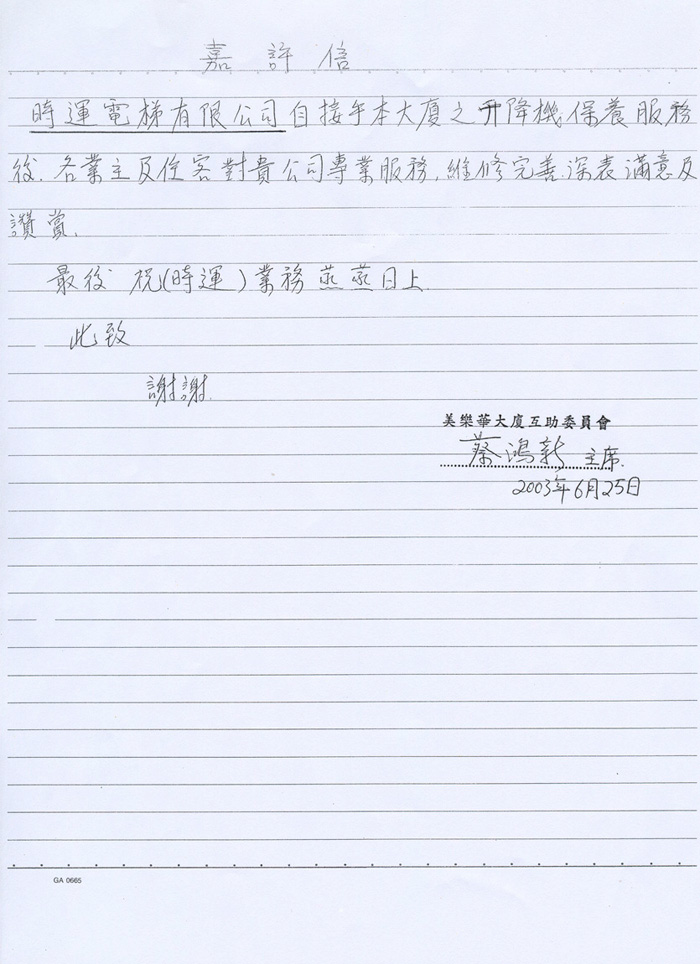 嘉許信
時運電梯有限公司自接手本大廈之升降機保養服務
後. 各業主及住客對貴公司專業服務, 維修完善. 深表滿意及
讚賞.
最後 祝(時運)業務蒸蒸日上.
此致
謝謝.
美樂華大廈互助委員會
蔡鴻新 主席.
2003年6月25日
GA 0665